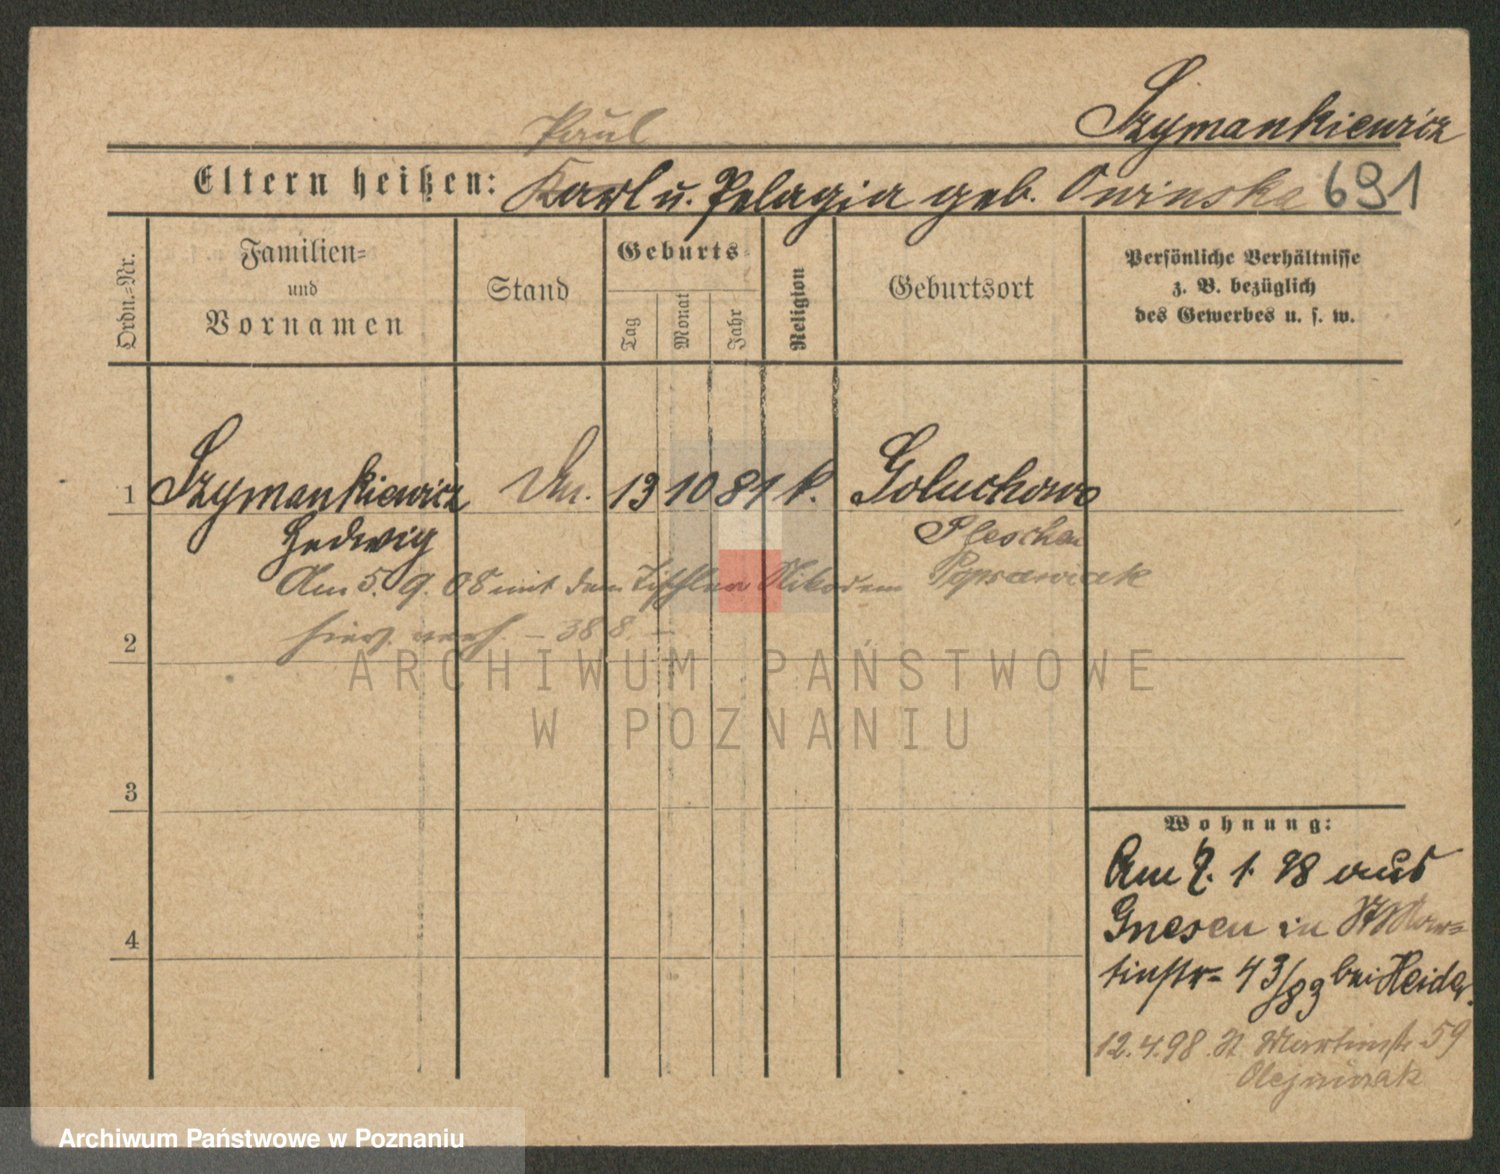 Szymankiewicz
Paul
Eltern heißen: Karl u. Pelagia geb. Owinska 691
Ordn.-Nr.
Familien-
und
Vornamen
Stand
Geburts-
Tag
Monat
Jahr
Religion
Geburtsort
Persönliche Verhältnisse
z. B. bezüglich
des Gewerbes u. s. w.
1 Szymankiewicz 13 10 81 k. Goluchowo
Hedwig Pleschen
Am 5. 9. 08 mit dem Tischler Nikodem
hier verh. - 388. -
2
3
4
ARCHIWUM PAŃSTWOWE
W POZNANIU
Wohnung:
Am 7. 1. 98 aus
Gnesen in St Mar-
tinstr- 43/83 bei Heider.
12.4.98. St. Martinstr 59
Olejniczak
Archiwum Państwowe w Poznaniu